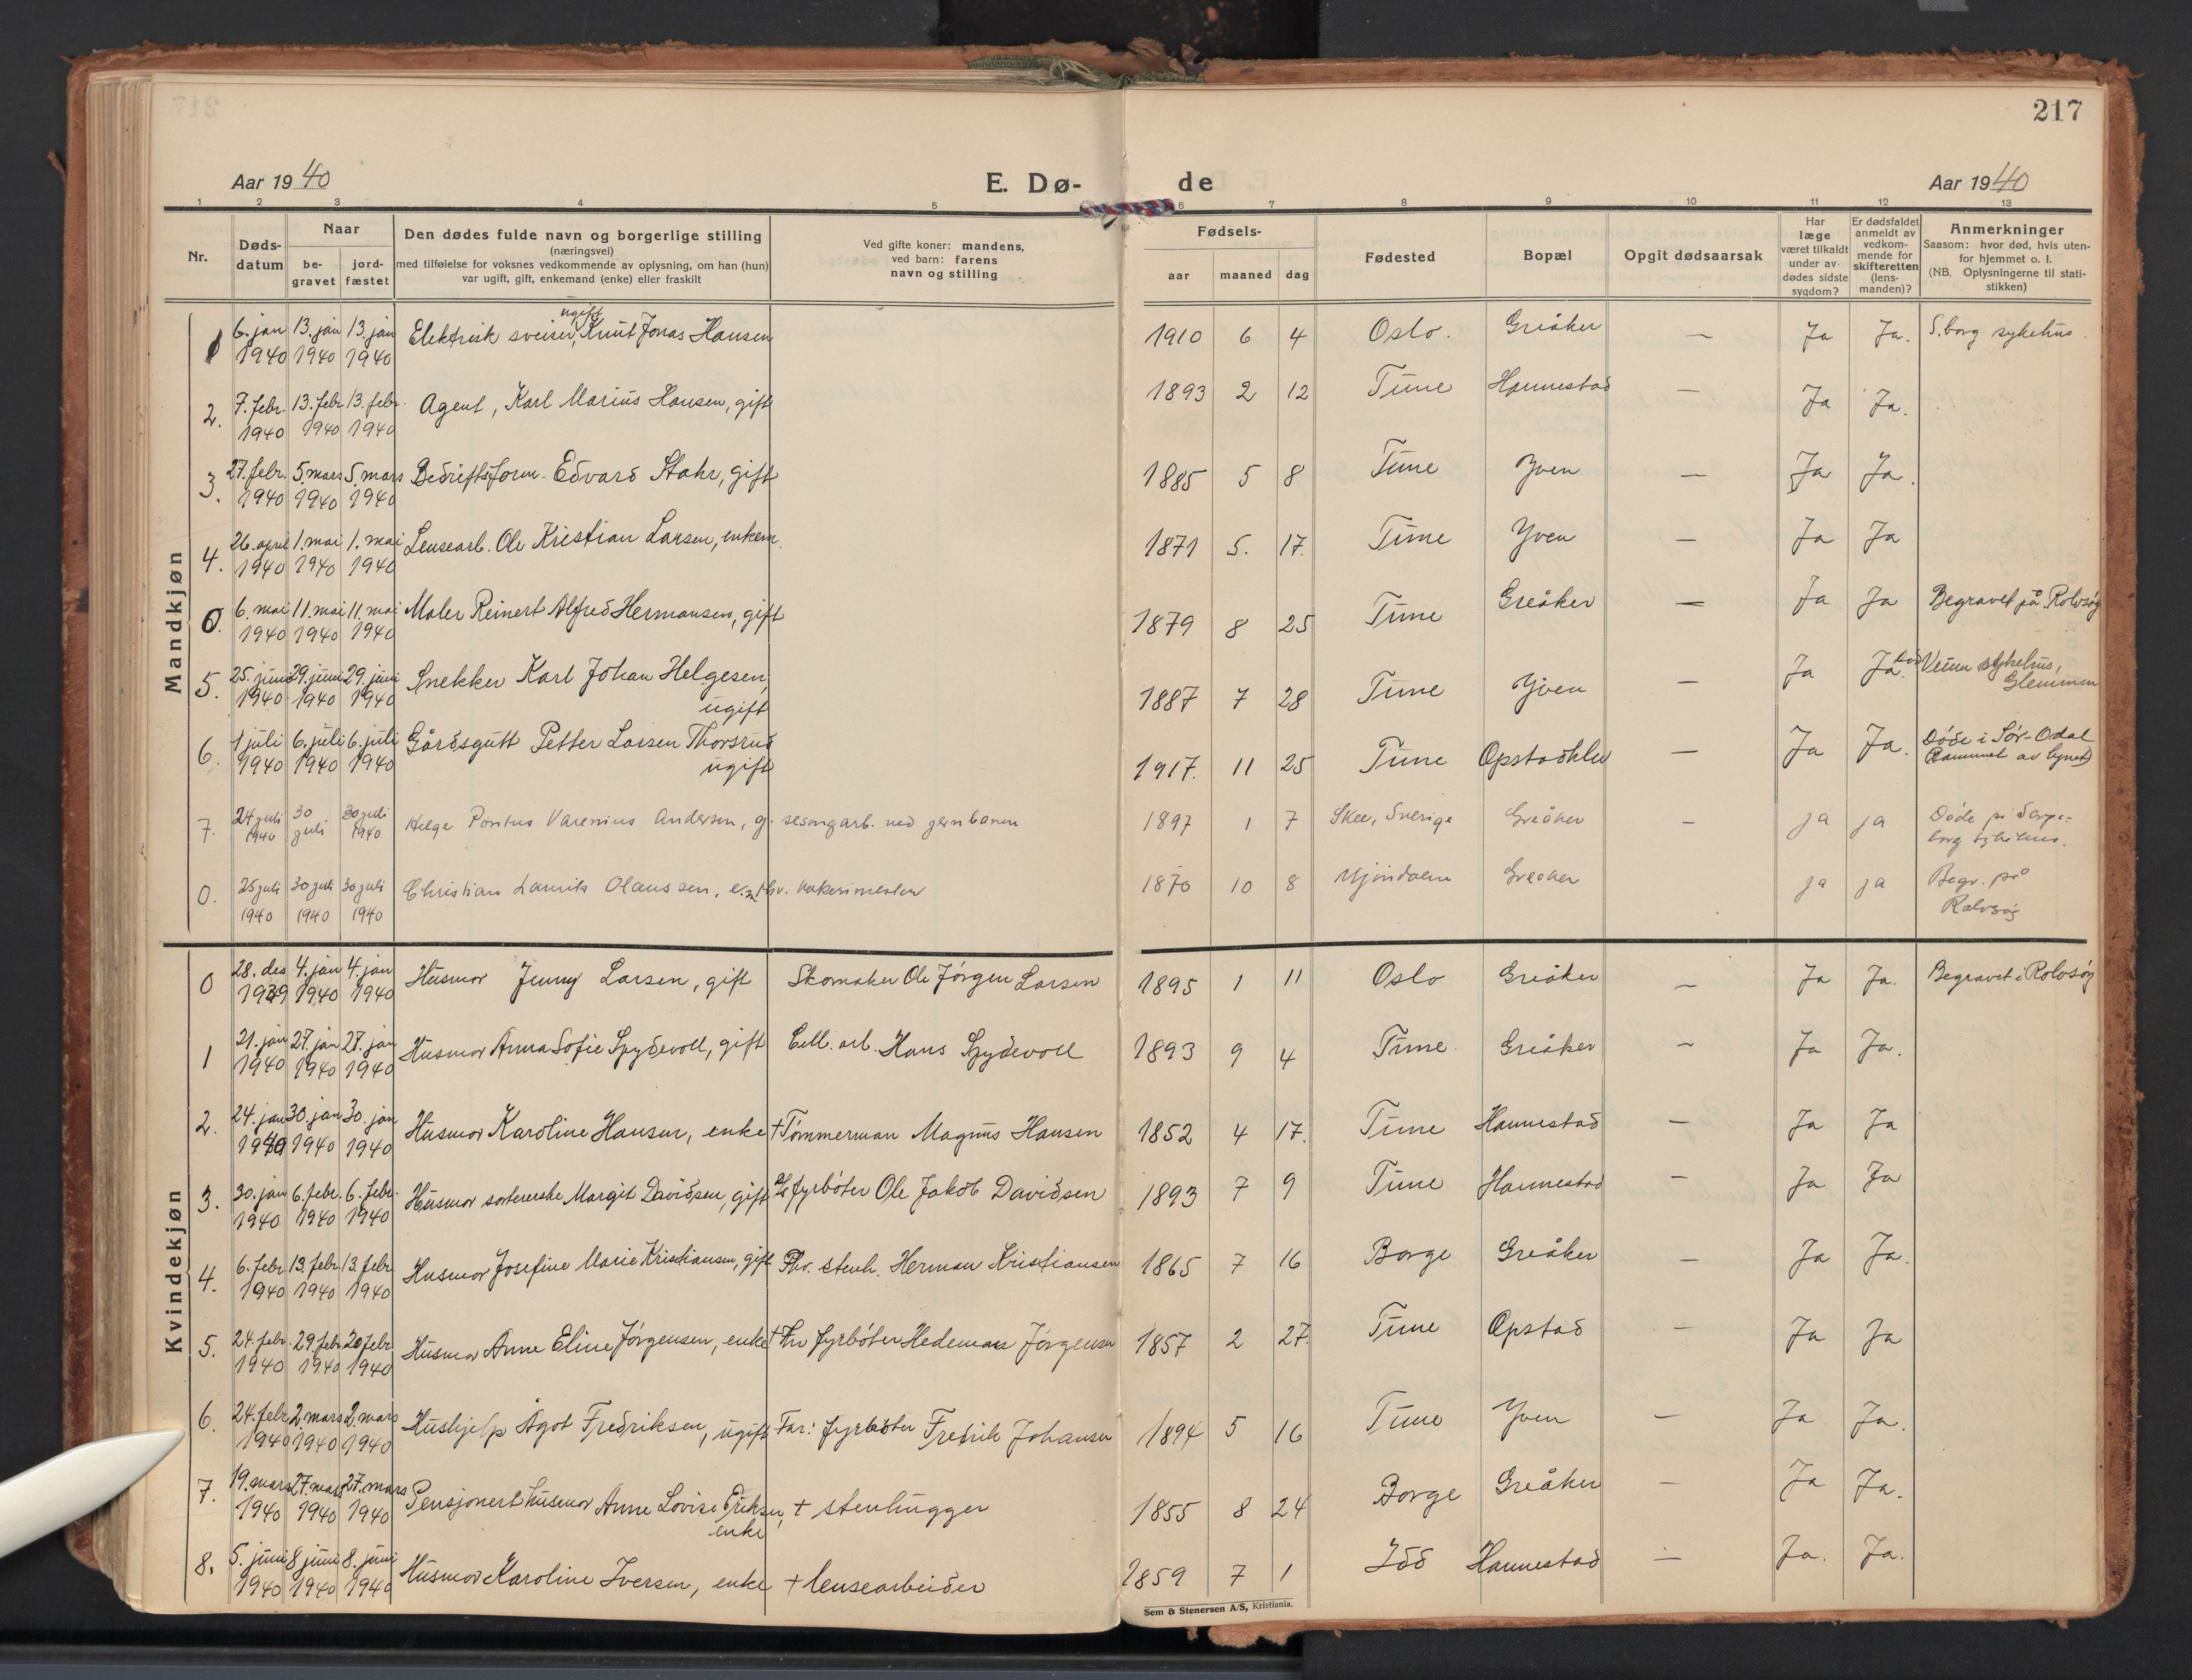 217
Aar 1940 E. Dø- de Aar 1940
1 2 3 4 5 6 7 8 9 10 11 12 13
Nr. Døds-datum Naar be-gravet jord-fæstet
Den dødes fulde navn og borgerlige stilling
(næringsvei)
med tilføielse for voksnes vedkommende av oplysning, om han (hun)
var ugift, gift, enkemand (enke) eller fraskilt
Ved gifte koner: mandens,
ved barn: farens
navn og stilling
Fødsels- aar maaned dag
Fødested
Bopæl
Opgit dødsaarsak
Har læge været tilkaldt under av-dødes sidste sygdom?
Er dødsfaldet anmeldt av vedkom-mende for skifteretten (lens-manden)?
Anmerkninger
Saasom: hvor død, hvis uten-
for hjemmet o. l.
(NB. Oplysningerne til stati-
stikken)
Mandkjøn
1 6. jan 1940 13. jan 1940 13. jan 1940 Elektrisk sveiser, ugift Knut Jonas Hansen 1910 6 4 Oslo. Greåker — Ja Ja. S.borg sykehus.
2. 7. febr. 1940 13. febr 1940 13. febr. 1940 Agent, Karl Marius Hansen, gift 1893 2 12 Tune Hannestad — Ja Ja.
3. 27. febr. 1940 5. mars 1940 5. mars 1940 Bedriftsform. Edvard Stahr, gift 1885 5 8 Tune Yven — Ja Ja.
4. 26. april 1940 1. mai 1940 1. mai 1940 Lensearb. Ole Kristian Larsen, enkem. 1871 5. 17. Tune Yven — Ja Ja
0. 6. mai 1940 11. mai 1940 11. mai 1940 Maler Reinert Alfred Hermansen, gift 1879 8 25 Tune Greåker — Ja Ja Begravet på Rolvsøy
5. 25. juni 1940 29. juni 1940 29. juni 1940 Snekker Karl Johan Helgesen, ugift 1887 7 28 Tune Yven — Ja Ja. Veum sykehus, Glemmen
6. 1 juli 1940 6. juli 1940 6. juli 1940 Gårdsgutt Petter Larsen Thorsrud ugift 1917. 11 25 Tune Opstadklev — Ja Ja. Døde i Sør-Odal (Rammet av lynet)
7. 24 juli 1940 30 juli 30 juli 1940 Helge Pontus Varenius Andersen, g. sesongarb. ved jernbanen 1897 1 7 Skee, Sverige Greåker — ja ja Døde på Sarps-borg sykehus.
0. 25 juli 1940 30 juli 1940 30 juli 1940 Christian Laurits Olaussen, e.m. fhv. vakermester 1870 10 8 Mjøndalen Greåker ja ja Begr. på Rolvsøy
Kvindekjøn
0 28. des 1939 4. jan 1940 4. jan 1940 Husmor Jenny Larsen, gift Skomaker Ole Jørgen Larsen 1895 1 11 Oslo Greåker — Ja Ja. Begravet i Rolvsøy
1 21. jan 1940 27. jan 1940 27. jan 1940 Husmor Anna Sofie Spydevoll, gift Cell. arb. Hans Spydevoll 1893 9 4 Tune Greåker — Ja Ja.
2. 24. jan 1940 30 jan 1940 30. jan 1940 Husmor Karoline Hansen, enke + Tømmerman Magnus Hansen 1852 4 17. Tune Hannestad — Ja Ja
3. 30. jan 1940 6. febr. 1940 6. febr. 1940 Husmor sortererske Margit Davidsen, gift fyrbøter Ole Jakob Davidsen 1893 7 9 Tune Hannestad — Ja Ja
4. 6. febr 1940 13. febr. 1940 13. febr. 1940 Husmor Josefine Marie Kristiansen, gift Fhv. stenh. Herman Kristiansen 1865 7 16 Borge Greåker — Ja Ja.
5. 24. febr. 1940 29. febr. 1940 febr 1940 Husmor Anne Eline Jørgensen, enke + fhv fyrbøter Hedeman Jørgensen 1857 2 27. Tune Opstad — Ja Ja
6. 24. febr 1940 2 mars 1940 2. mars 1940 Hushjelp Ågot Fredriksen, ugift Far: fyrbøter Fredrik Johansen 1894 5 16 Tune Yven — Ja Ja.
7. 19. mars 1940 27. mars 1940 27. mars 1940 Pensjonert husmor Anne Lovise Eriksen, enke + stenhugger 1855 8 24 Borge Greåker — Ja Ja.
8. 5. juni 1940 8 juni 1940 8. juni 1940 Husmor Karoline Iversen, enke + lensearbeider 1859 7 1 Idd Hannestad — Ja. Ja.
Sem & Stenersen A/S, Kristiania.